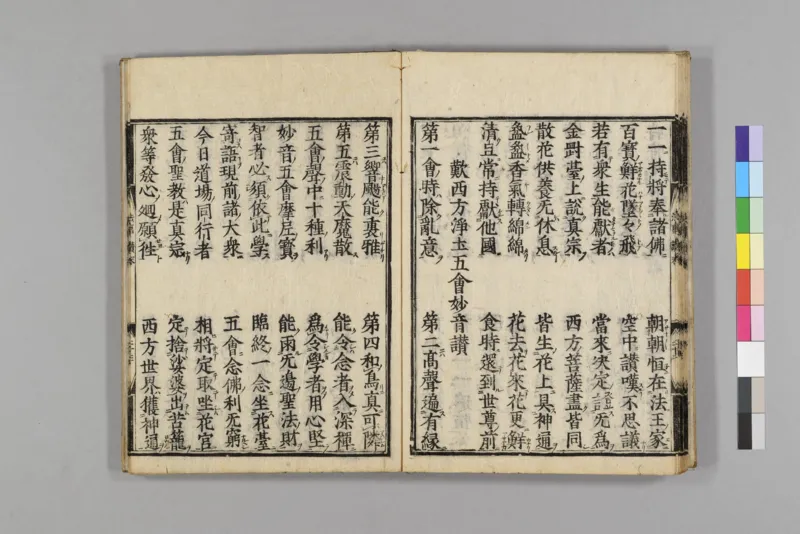 一一持將奉諸佛　朝朝恒在法王家
百寶鮮花墜々飛　空中讃嘆不思議
若有衆生能獻者　當來决定證无爲
金對堂上說真宗　西方菩薩盡皆同
散花供養无休息　皆生花上具神通
盤盤香氣轉綿綿　花去花來花更鮮
清旦常持獻他國　食時還到世尊前
歎西方淨土五會妙音讃
第一會時除亂意　第二高聲遍有緣
第三響颺能哀雅　第四和鳥真可隣
第五震動天魔散　能令念者入深禪
五會聲中十種利　爲令學者用心堅
妙音五會摩尼寳　能雨无邊聖法財
智者必須依此學　臨終一念坐花堂
寄語現前諸大衆　五會念佛利无窮
今日道場同行者　相將定取坐花宮
五會聖教是真宗　定捨娑婆出苦籠
衆等發心廻願徃　西方世界獲神通